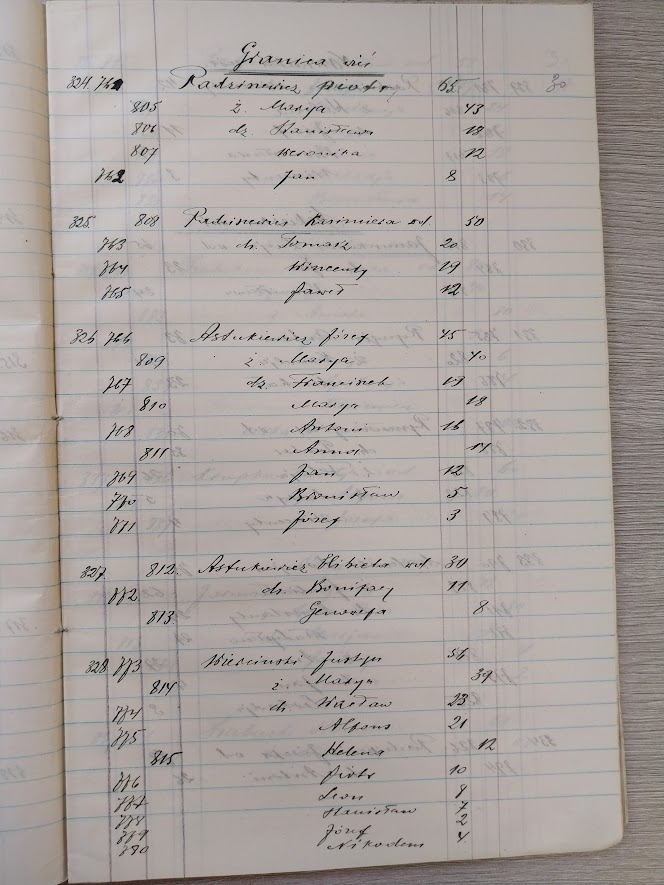 Granica wieś
324. 761 Radziniewicz Piotr 65 30
805 ż. Marya 43
806 dz. Stanisława 18
807 Weronika 12
762 Jan 8
325. 808 Radziniewicz Kazimiera wd. 50
763 dz. Tomasz 20
764 Wincenty 19
765 Paweł 12
326 766 Astukiewicz Józef 45
809 ż. Marya 40
767 dz. Franciszek 19
810 Marya 18
768 Antoni 16
811 Anna 14
769 Jan 12
770 Bronisław 5
771 Józef 3
327 812. Astukiewicz Elżbieta wd 30
772 dz. Bonifacy 11
813 Genowefa 8
328 773 Wierciński Justyn 56
814 ż Marya 39
774 dz. Wacław 23
775 Alfons 21
815 Helena 12
776 Piotr 10
777 Leon 9
778 Stanisław 7
779 Józef 2
780 Nikodem 4